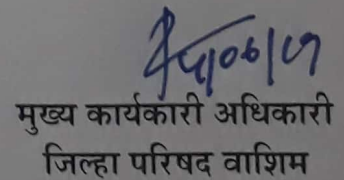 मुख्य कार्यकारी अधिकारी
जिल्हा परिषद वाशिम